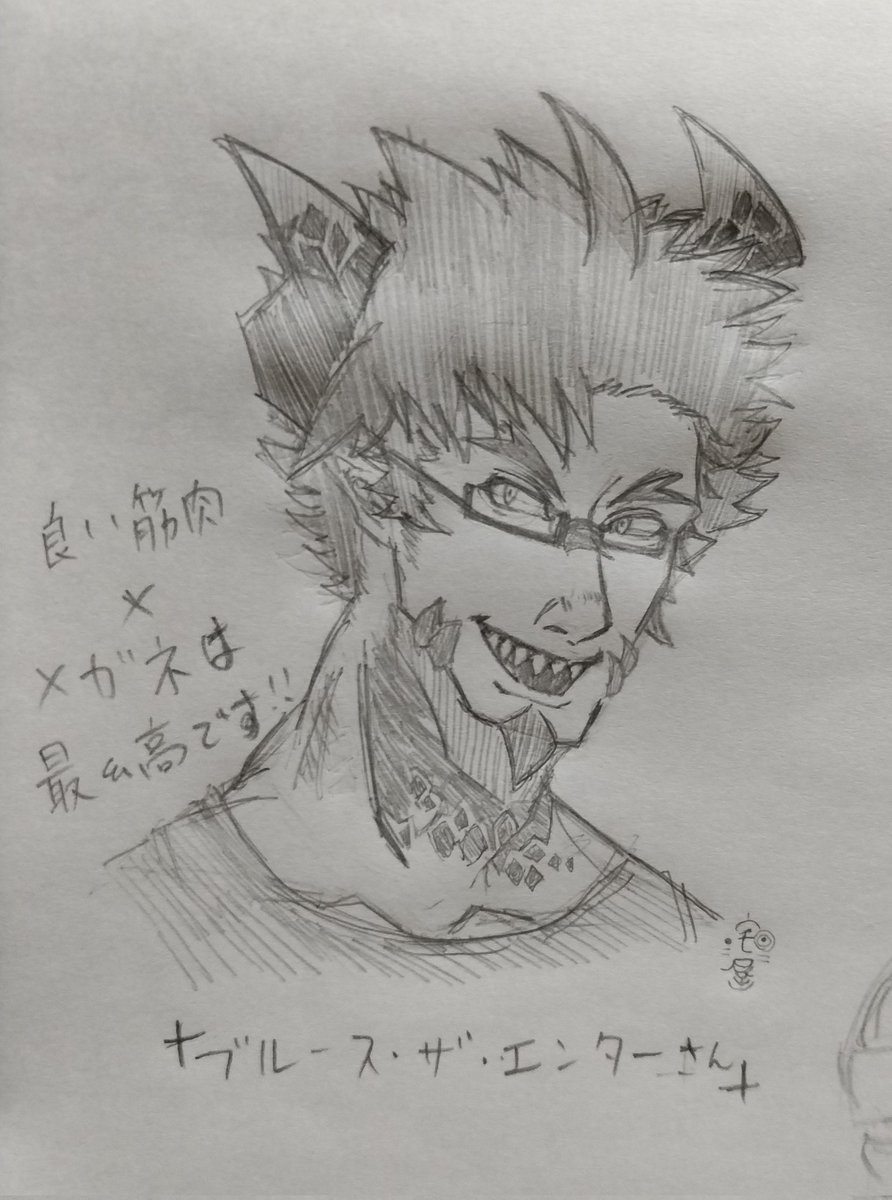 良い筋肉
×
メガネは
最&高です!!
ブルース・ザ・エンターさん